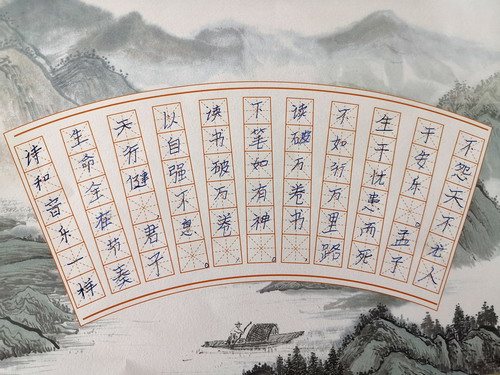 诗和音乐一样
生命全在节奏
天行健,君子
以自强不息。
读书破万卷,
下笔如有神。
读破万卷书,
不如行万里路
生于忧患而死
于安乐。孟子
不怨天不尤人